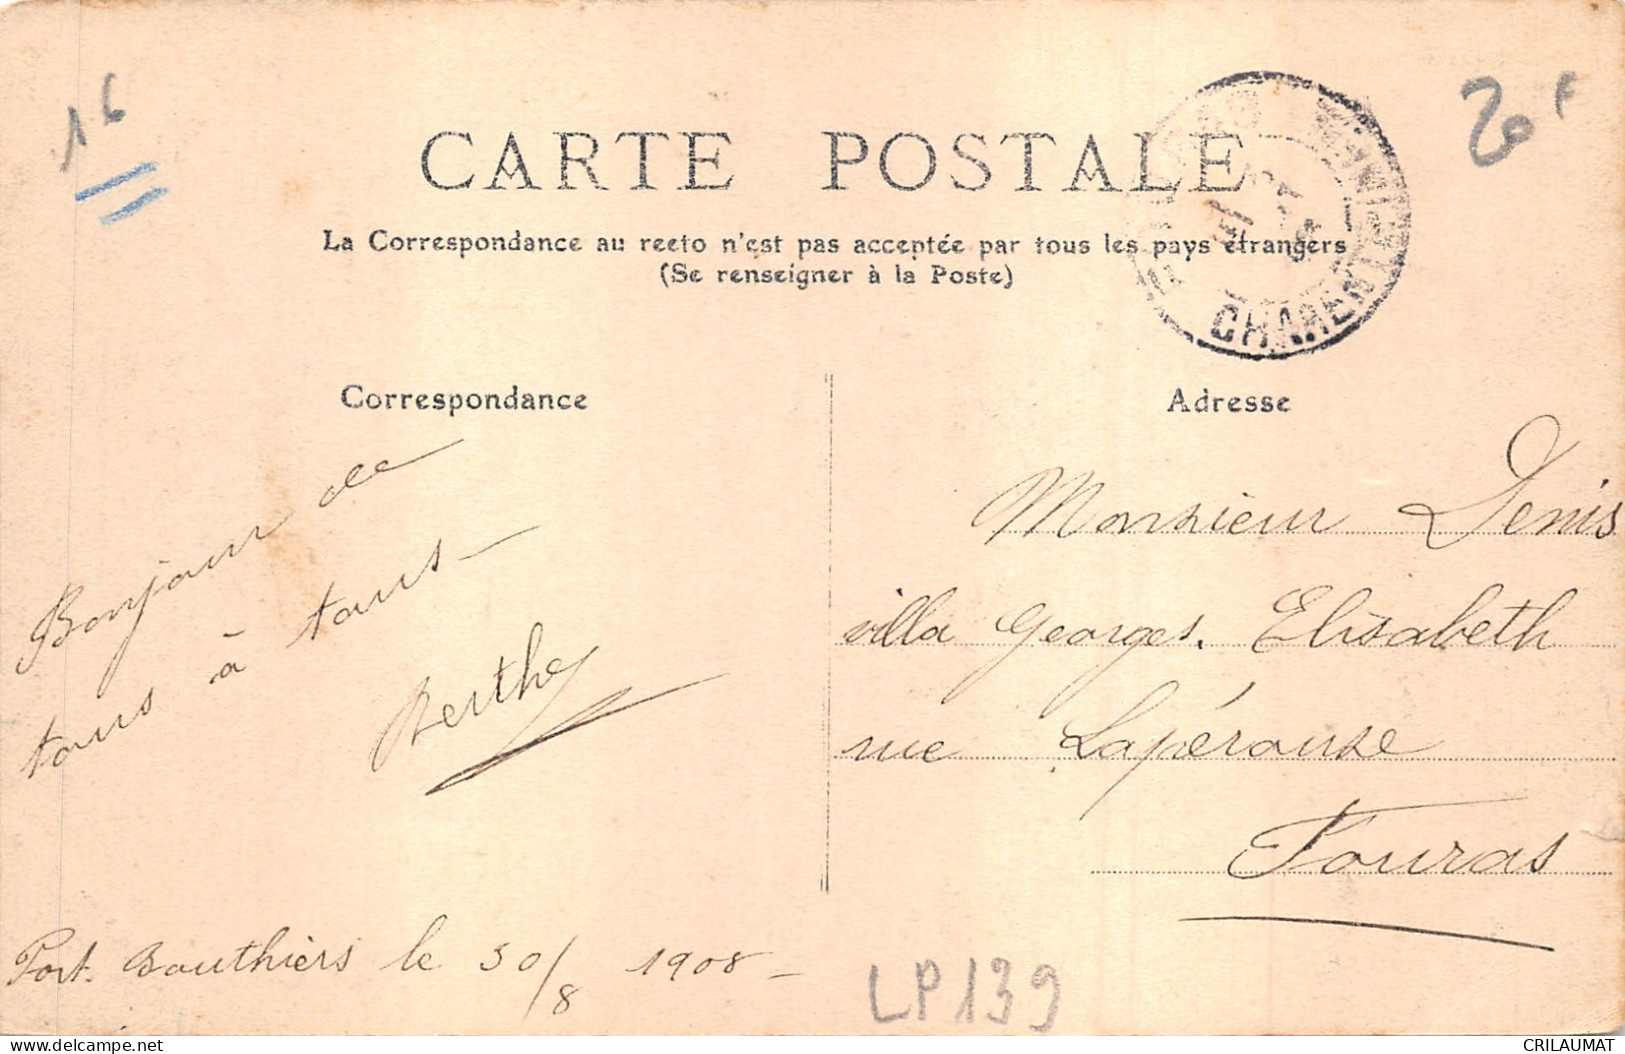 16
20F
CARTE POSTALE
La Correspondance au recto n'est pas acceptée par tous les pays étrangers
(Se renseigner à la Poste)
CHARENTE
Correspondance
Adresse
Bonjour de
tous à tous -
Berthe
Port. Bouthiers le 30/8 1908 -
Monsieur Denis
villa Georges. Elisabeth
rue Lapérouse
Fouras
LP139
delcampe.net
CRILAUMAT